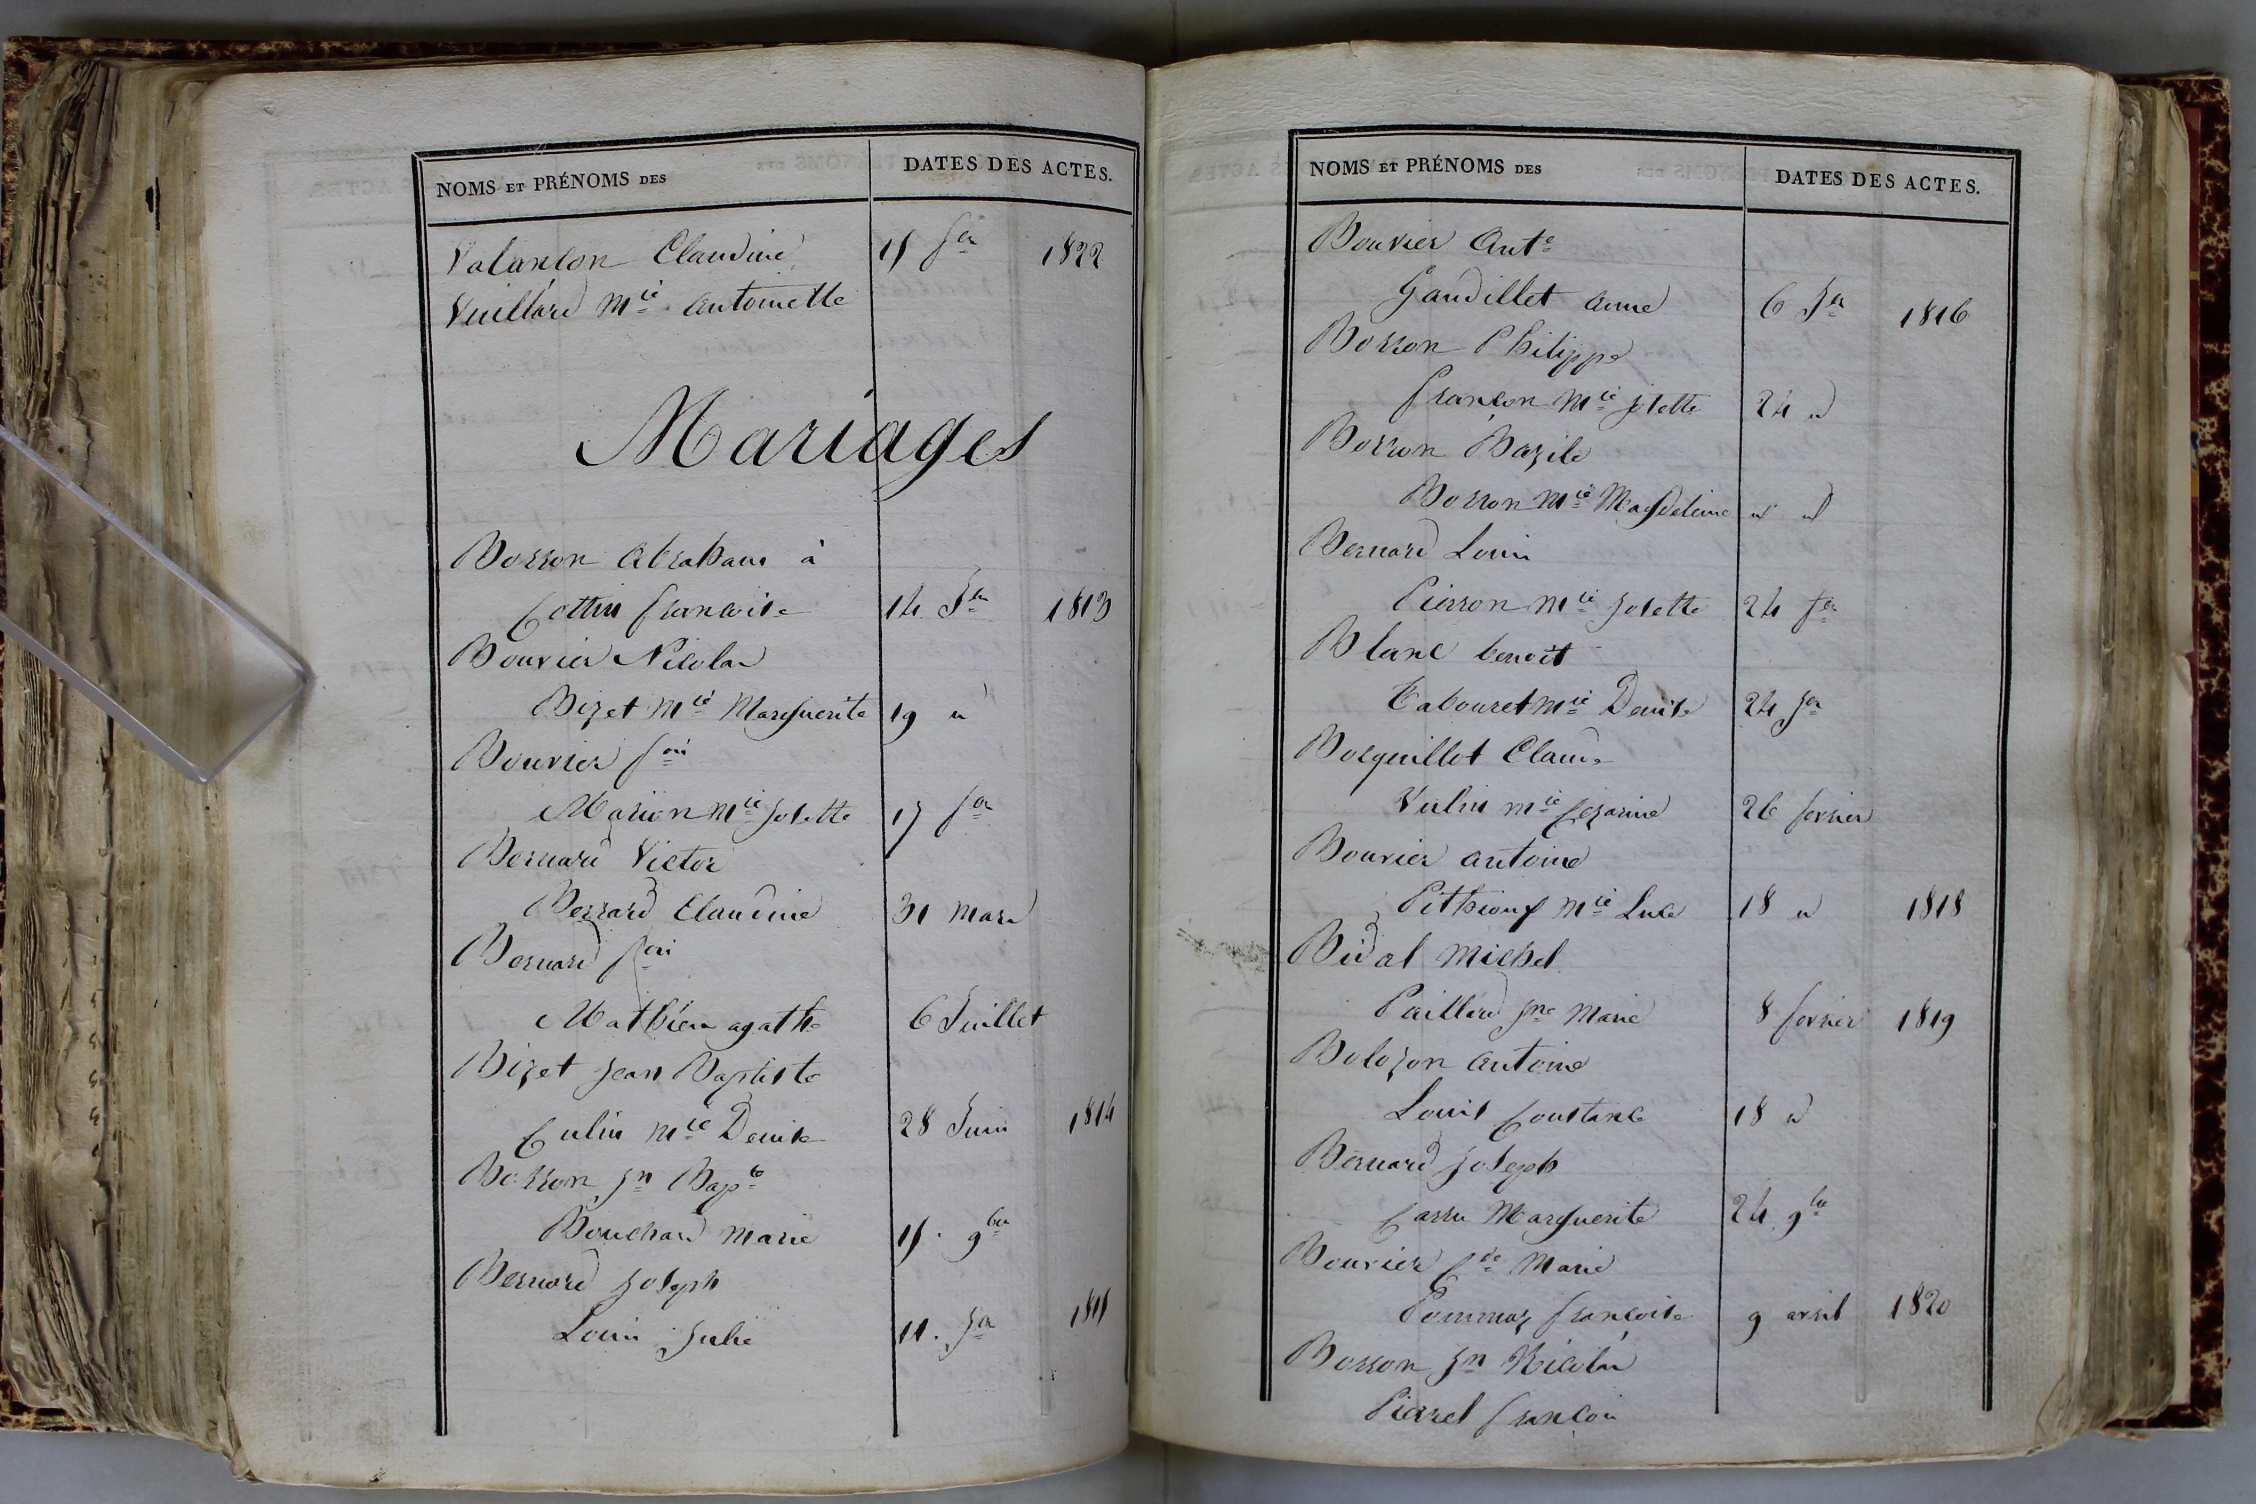 NOMS ET PRÉNOMS DES DATES DES ACTES.
Valançon Claudine 15 fer 1822
Vuillard Mie antoinette
Mariages
Borron abraham à
Cottin francoise 14 Jer 1813
Bouvier Nicolas
Bizet Mie Marguerite 19 "
Bouvier foi
Marion Mie Josette 17 fer
Bernard Victor
Berrard Claudine 31 Mars
Bernard foi
Mathieu agathe 6 Juillet
Bizet Jean Baptiste
Culin Mie Denise 28 Juin 1814
Borron Jn Bapte
Bouchard Marie 15. 9bre
Bernard Joseph
Louis Julie 11. Jer 1815
NOMS ET PRÉNOMS DES DATES DES ACTES.
Bouvier Ante
Gaudillet anne 6 Jer 1816
Borron Philippe
françon Mie Josette 24 "
Borron Bazile
Borron Mie Magdeleine " "
Bernard Louis
Pierron Mie Josette 24 fer
Blanc benoit
Tabouret Mie Denise 24 Jer
Bocquillot Claude
Vulin Mie Cezarine 26 fevrier
Bouvier antoine
Pithioux Mie Luce 18 " 1818
Bidal Michel
Paillard Jne Marie 8 fevrier 1819
Bolozon antoine
Louis Constance 18 "
Bernard Joseph
Carru Marguerite 24 9bre
Bouvier Cde Marie
Pommaz francoise 9 avril 1820
Borron Jn Nicolas
Pierrel françoi